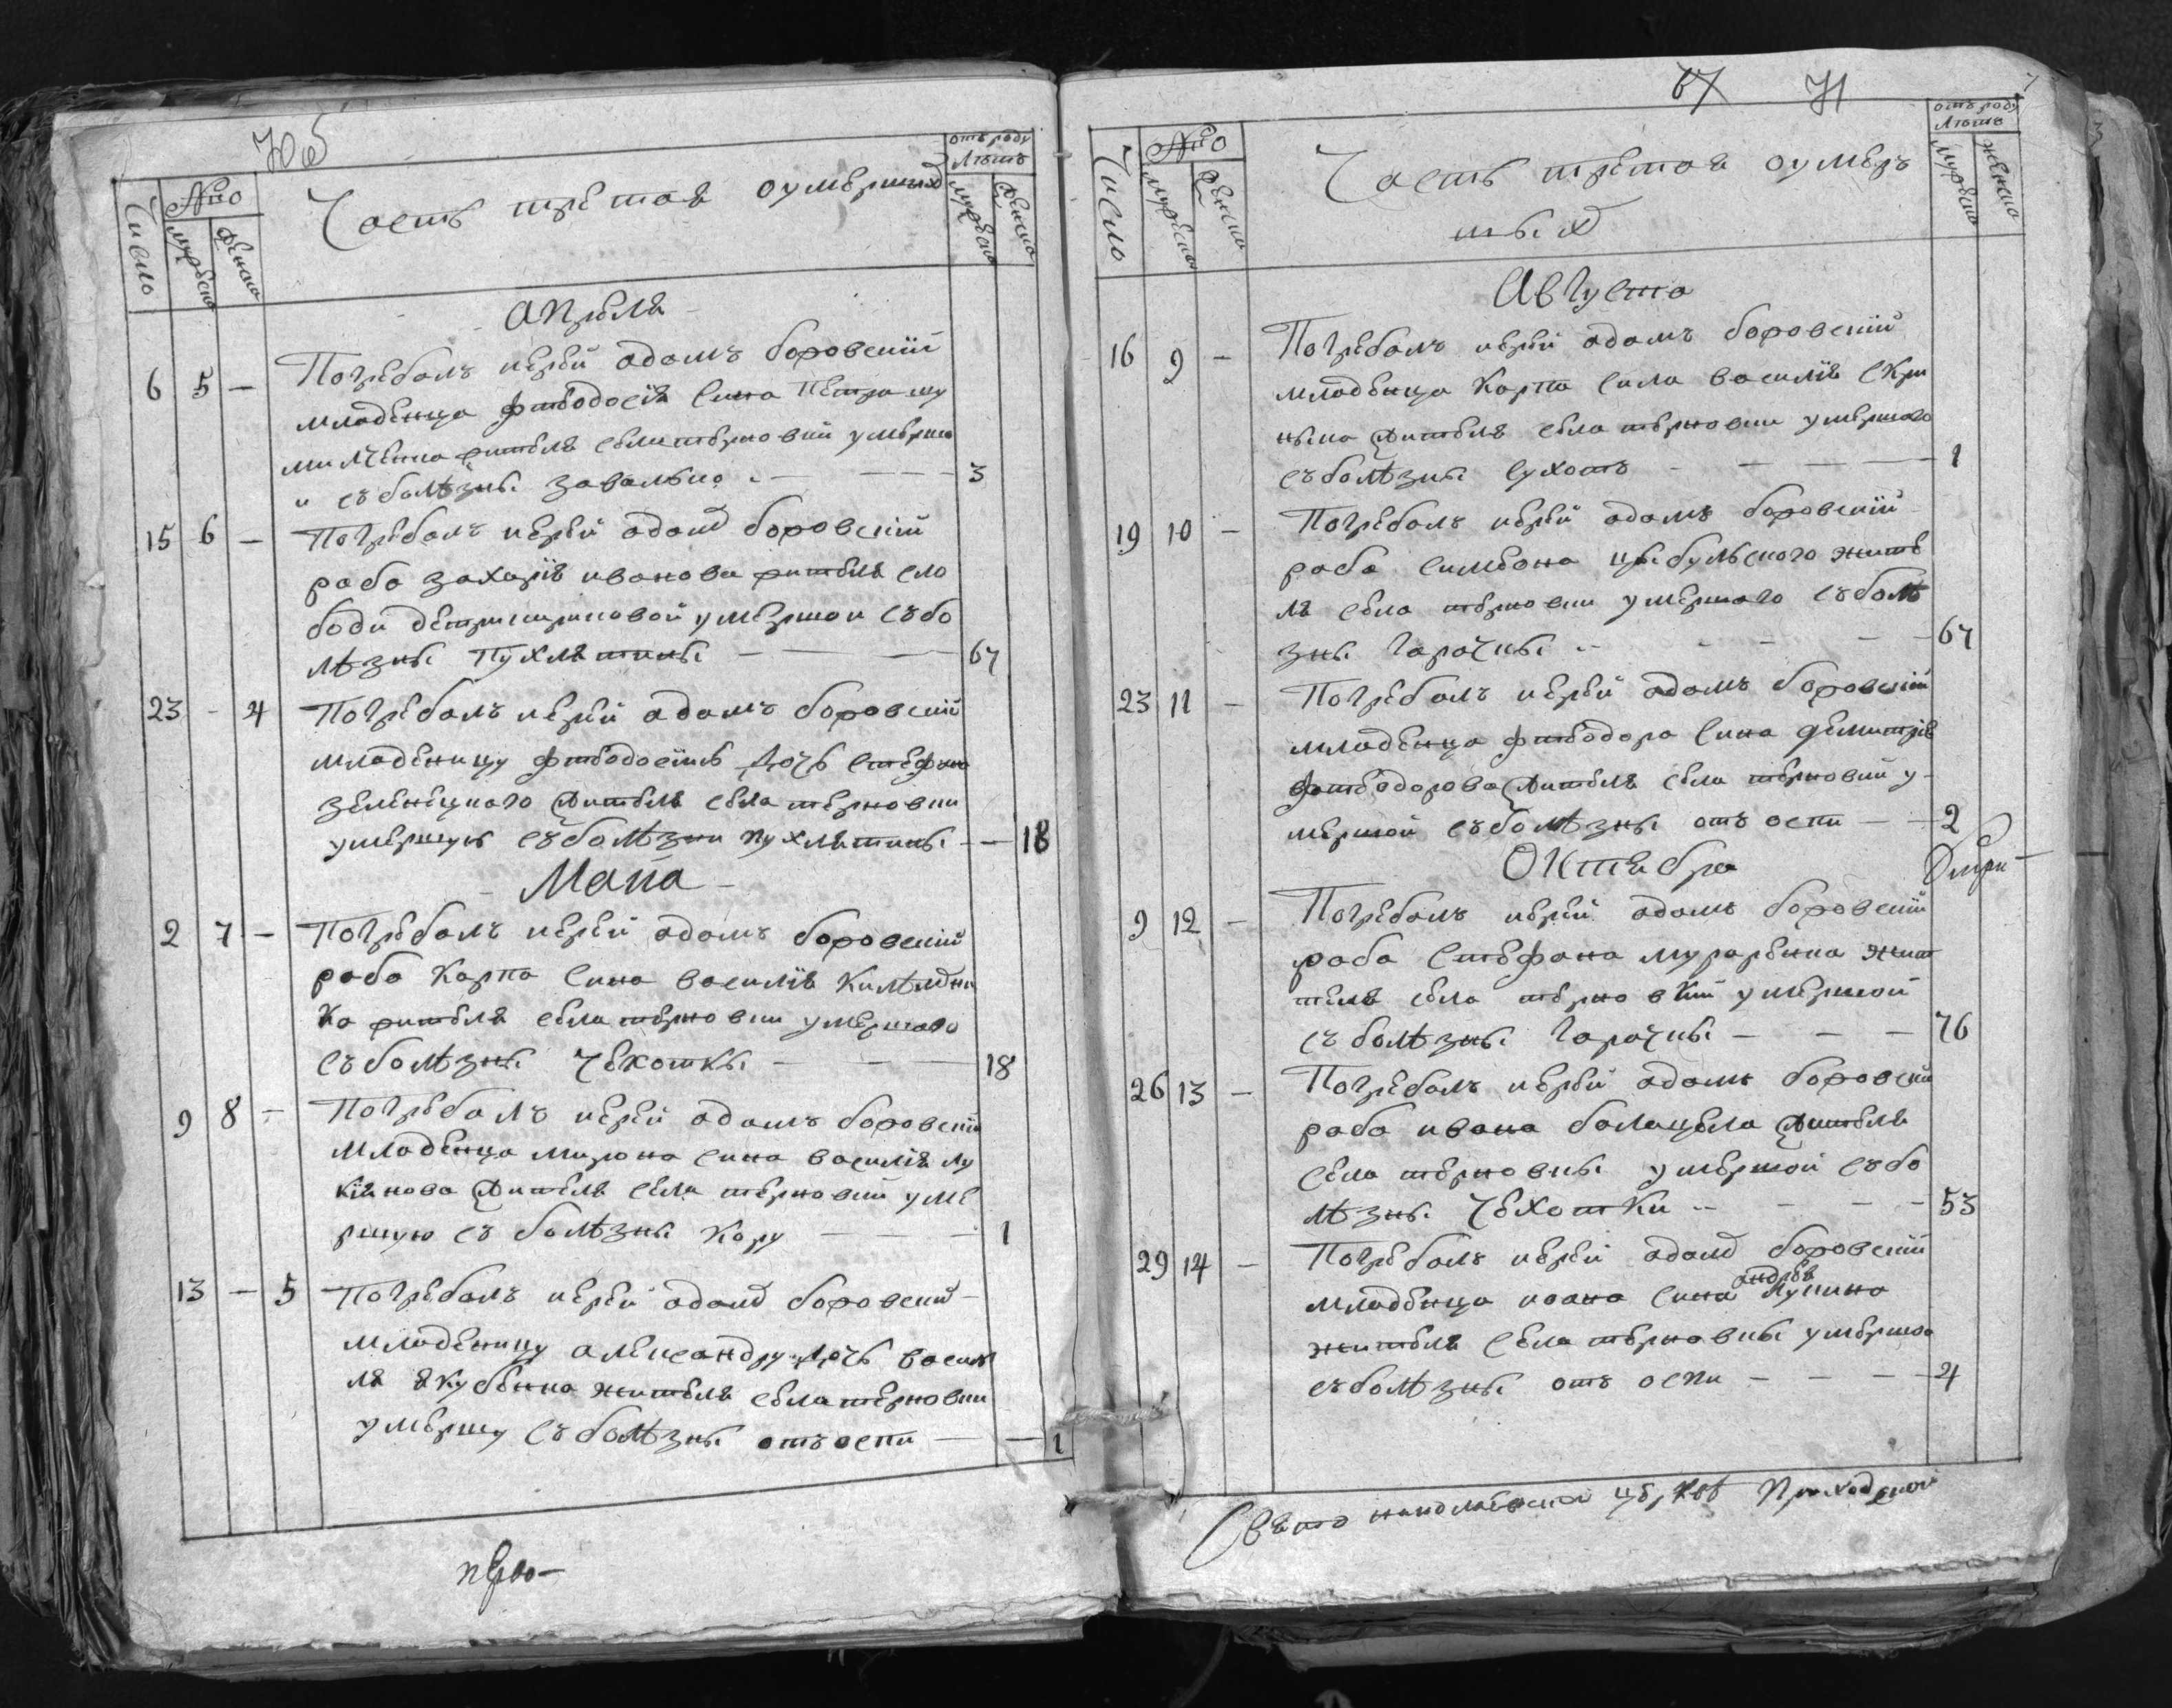 Число
№по
мужеска
женска
Часть третая о умершихъ
отъ роду
лѣтъ
мужеска
женска
Апреля
6 5 — Погребалъ иерей адамъ боровскій
младенца феодосія сина Петра
жителя села терновки умерша
съ болѣзны завалью — 3
15 6 — Погребалъ иерей адамъ боровскій
раба захарія иванова жителя сло
боди умершои съ бо
лѣзны пухлятины — 67
23 - 4 Погребалъ иерей адамъ боровскій
младеницу феодосію дочь стефана
зеленецкого жителя села терновки
умершую съ болѣзни пухлятины — 18
Мая
2 7 — Погребалъ иерей адамъ боровскій
раба Карпа сина василія
ка жителя села терновки умершаго
съ болѣзны чехоткы — 18
9 8 — Погребалъ иерей адамъ боровскій
младенца мирона сина василія лу
кіянова жителя села терновки уме
ршую съ болѣзны кору — 1
13 — 5 Погребалъ иерей адамъ боровский
младеницу александру дочь васи
ля якубенка жителя села терновки
умершу съ болѣзны отъ оспи — 1
67 71
Число
№по
мужеска
женска
Часть третая о умер
шыхъ
отъ роду
лѣтъ
мужеска
женска
Августа
16 9 — Погребалъ иерей адамъ боровскій
младенца Карпа сина василія скри
ныка жителя села терновки умершаго
съ болѣзны сухотъ — 1
19 10 — Погребалъ иерей адамъ боровскій
раба симеона цыбульского жите
ля села терновки умершаго съ болѣ
зны горачкы — 67
23 11 — Погребалъ иерей адамъ боровскій
младенца феодора сина димитрія
феодорова жителя села терновки у
мершой съ болѣзны отъ оспи — 2
Октября
9 12 — Погребалъ иерей адамъ боровскій
раба стефана мураренка жит
теля села терновкй умершой
съ болѣзны горачкы — 76
26 13 — Погребалъ иерей адамъ боровскій
раба ивана балацела жителя
села терновкы умершой съ бо
лѣзны чехотки — 53
29 14 — Погребалъ иерей адамъ боровскій
андрея
младенца иоана сина лупина
жителя села терновкы умершои
съ болѣзны отъ оспи — 4
Свято николаевской церкви приходской